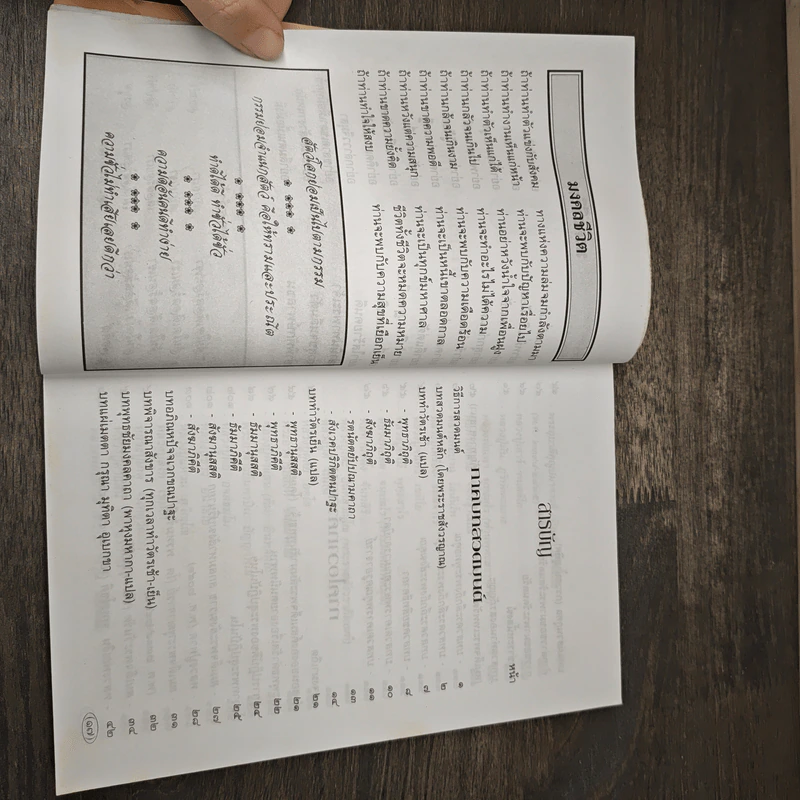 มงคลชีวิต
ถ้าท่านทำตัวแข่งกับสังคม ทางแห่งความล่มจมกำลังตามมา
ถ้าท่านทำงานเห็นแก่หน้า ท่านจะพบกับปัญหาเรื่อยไป
ถ้าท่านทำตัวเห็นแก่ได้ ท่านอย่าหวังน้ำใจจากเพื่อนฝูง
ถ้าท่านกลัวจนเกินไป ท่านจะทำอะไรไม่ได้ความ
ถ้าท่านกล้าจนเกินงาม ท่านจะพบกับความเดือดร้อน
ถ้าท่านขาดความพอดี ท่านจะเป็นหนี้เขาตลอดกาล
ถ้าท่านหวังแต่ความสนุก ท่านจะเป็นทุกข์มหาศาล
ถ้าท่านขาดความยั้งคิด ชีวิตทั้งชีวิตจะหมดความหมาย
ถ้าท่านทำใจให้สงบ ท่านจะพบกับความสุขที่เยือกเย็น
สัตว์โลกย่อมเป็นไปตามกรรม
กรรมย่อมจำแนกสัตว์ คือให้ทรามและประณีต
ทำดีได้ดี ทำชั่วได้ชั่ว
ความดีอันคนดีทำง่าย
ความชั่วไม่ทำเสียเลยดีกว่า
สารบัญ
หน้า
ภาคบทสวดมนต์
วิธีการสวดมนต์ ๑
บทสวดมนต์หลัก (โดยพระราชสังวรญาณ) ๒
บททำวัตรเช้า (แปล) ๗
- พุทธาภิถุติ ๘
- ธัมมาภิถุติ ๑๐
- สังฆาภิถุติ ๑๑
- รตนัตตยัปปณามคาถา ๑๓
- สังเวคปริกิตตนปาฐะ ๑๔
บททำวัตรเย็น (แปล) ๒๑
- พุทธานุสสติ ๒๑
- พุทธาภิคีติ ๒๒
- ธัมมานุสสติ ๒๔
- ธัมมาภิคีติ ๒๕
- สังฆานุสสติ ๒๗
- สังฆาภิคีติ ๒๘
บทอภิณหปัจจเวกขณปาฐะ ๓๑
บทพิจารณาสังขาร (ทุกเวลาทำวัตรเช้า-เย็น) ๓๒
บทพุทธชัยมงคลคาถา (พาหุงมหากา-แปล) ๓๔
บทแผ่เมตตา กรุณา มุทิตา อุเบกขา ๔๒
(๑๗)